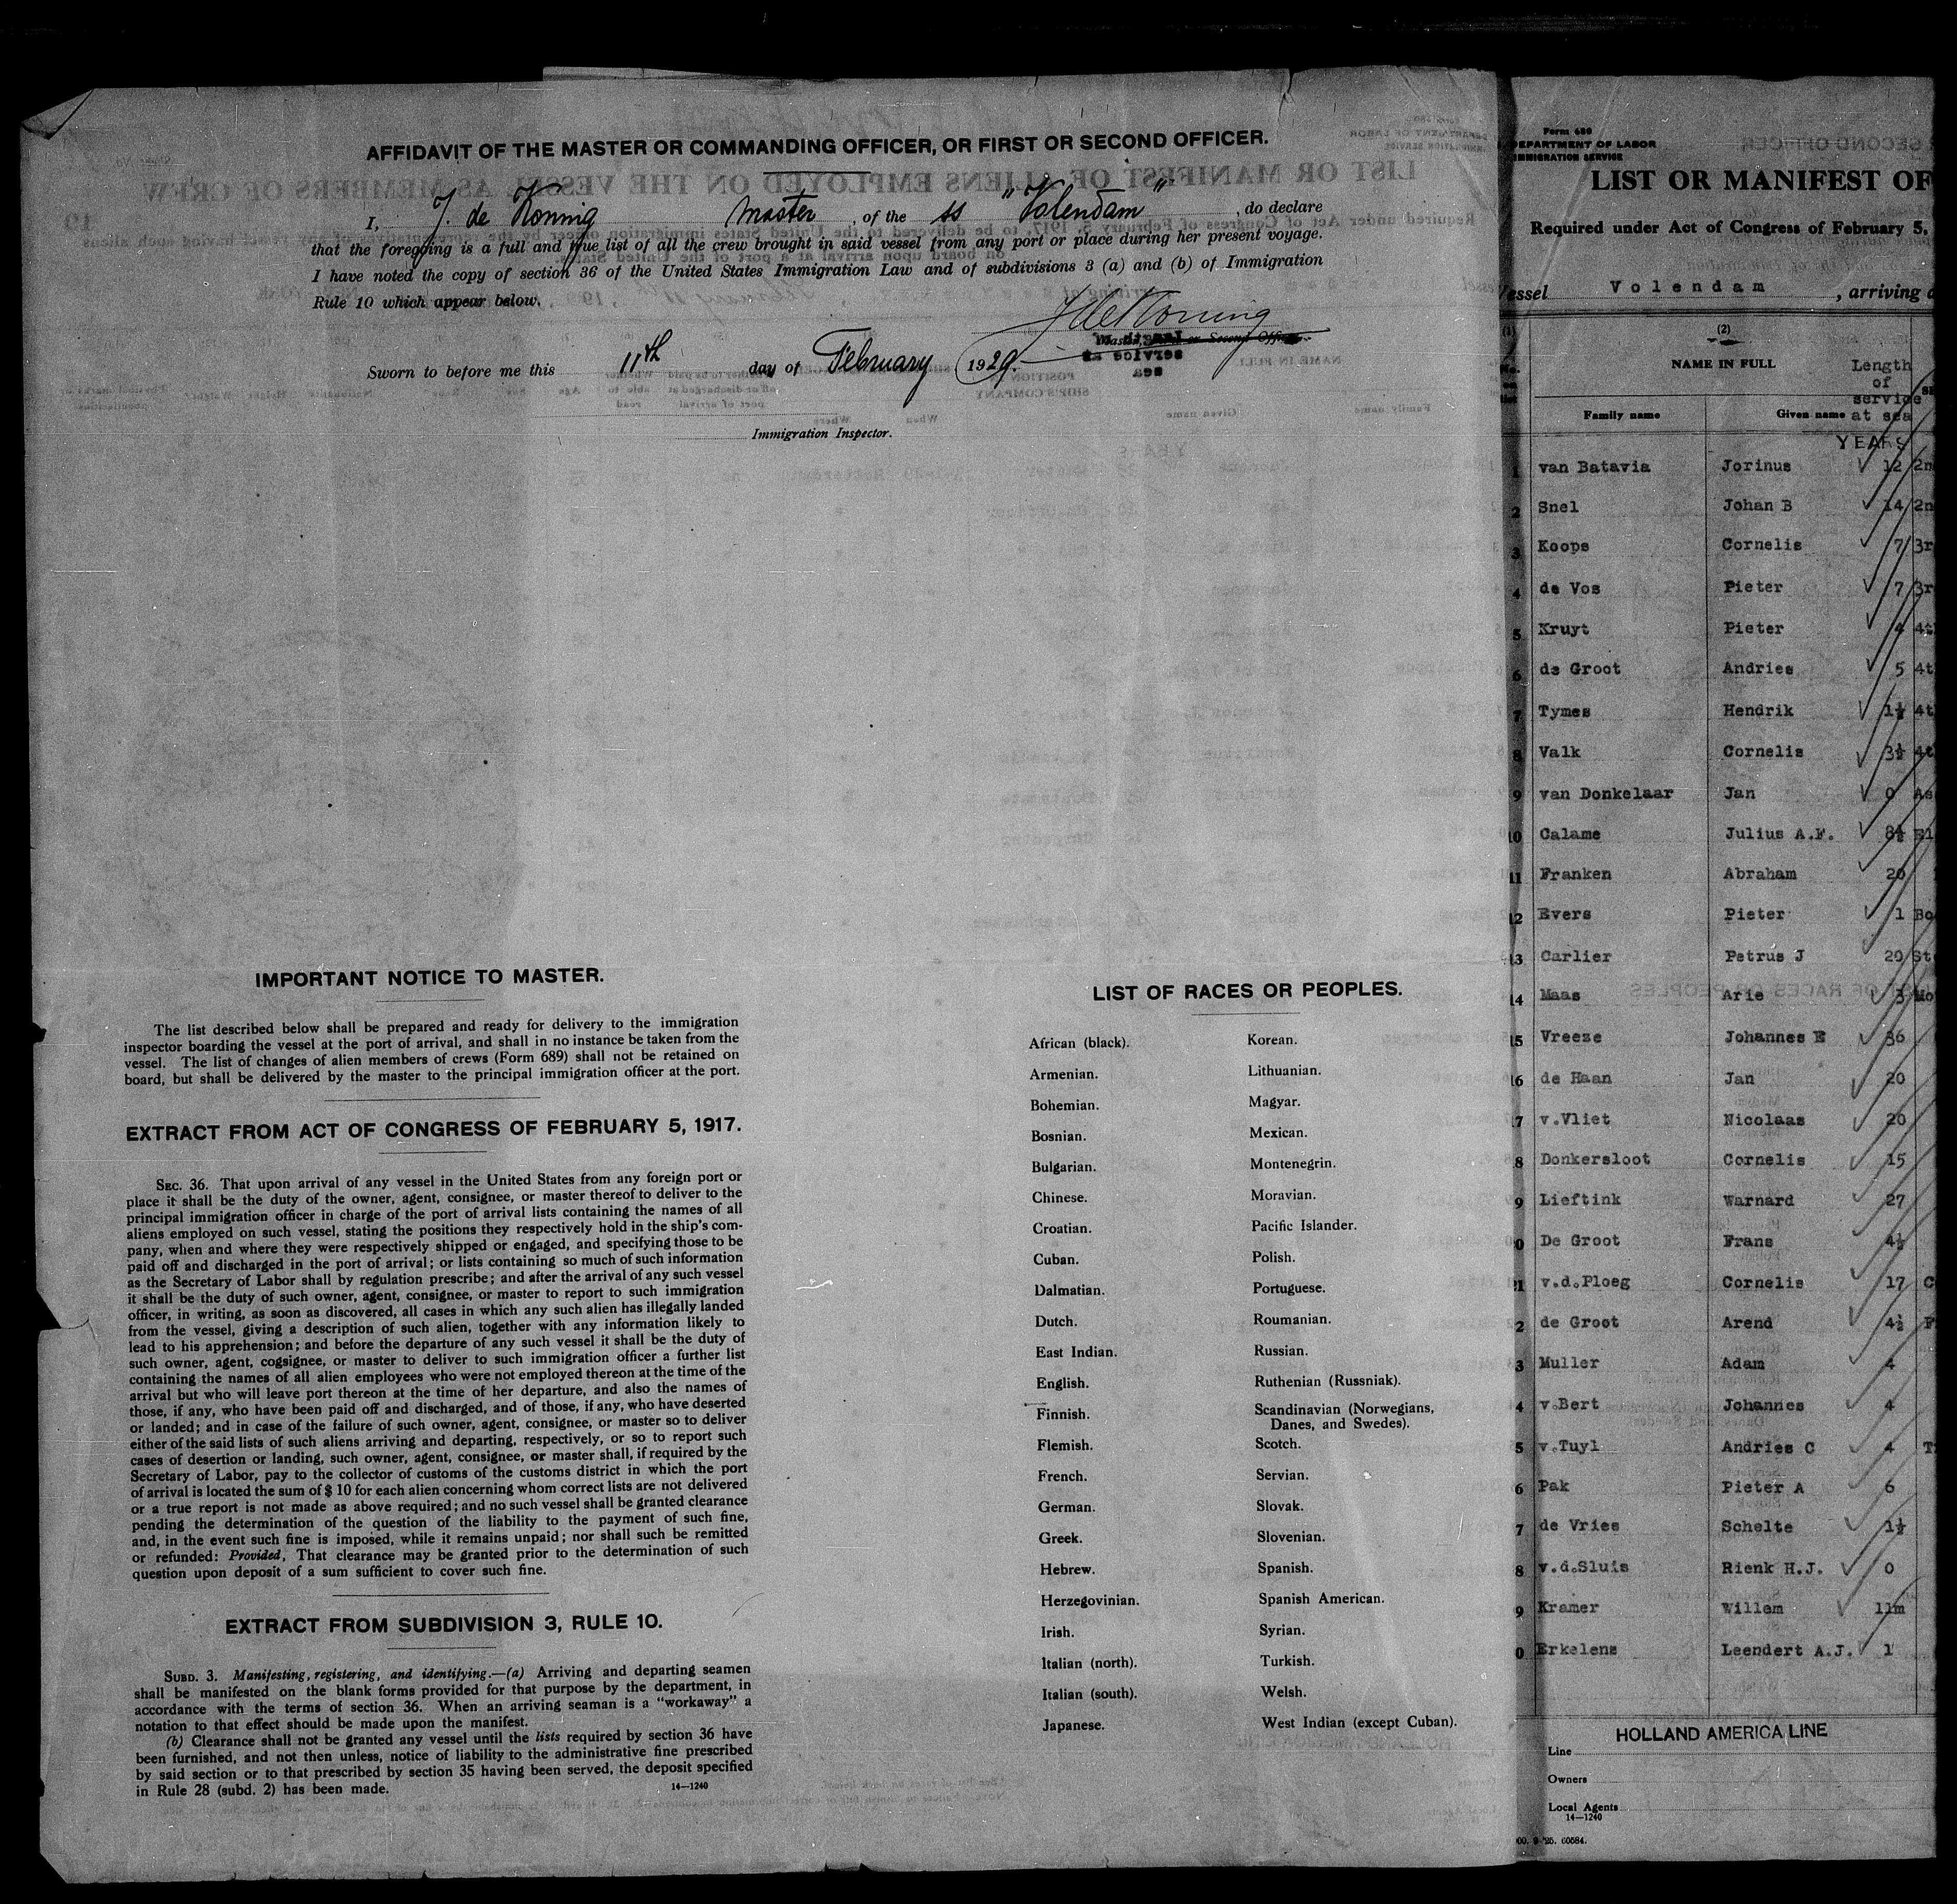 AFFIDAVIT OF THE MASTER OR COMMANDING OFFICER, OR FIRST OR SECOND OFFICER.
I, J. de Koning master, of the ss "Volendam", do declare
that the foregoing is a full and true list of all the crew brought in said vessel from any port or place during her present voyage.
I have noted the copy of section 36 of the United States Immigration Law and of subdivisions 3 (a) and (b) of Immigration
Rule 10 which appear below.
J de Koning
Master, First or Second Officer.
Sworn to before me this 11th day of February 1929.
Immigration Inspector.
IMPORTANT NOTICE TO MASTER.
The list described below shall be prepared and ready for delivery to the immigration
inspector boarding the vessel at the port of arrival, and shall in no instance be taken from the
vessel. The list of changes of alien members of crews (Form 689) shall not be retained on
board, but shall be delivered by the master to the principal immigration officer at the port.
EXTRACT FROM ACT OF CONGRESS OF FEBRUARY 5, 1917.
SEC. 36. That upon arrival of any vessel in the United States from any foreign port or
place it shall be the duty of the owner, agent, consignee, or master thereof to deliver to the
principal immigration officer in charge of the port of arrival lists containing the names of all
aliens employed on such vessel, stating the positions they respectively hold in the ship's com-
pany, when and where they were respectively shipped or engaged, and specifying those to be
paid off and discharged in the port of arrival; or lists containing so much of such information
as the Secretary of Labor shall by regulation prescribe; and after the arrival of any such vessel
it shall be the duty of such owner, agent, consignee, or master to report to such immigration
officer, in writing, as soon as discovered, all cases in which any such alien has illegally landed
from the vessel, giving a description of such alien, together with any information likely to
lead to his apprehension; and before the departure of any such vessel it shall be the duty of
such owner, agent, cogsignee, or master to deliver to such immigration officer a further list
containing the names of all alien employees who were not employed thereon at the time of the
arrival but who will leave port thereon at the time of her departure, and also the names of
those, if any, who have been paid off and discharged, and of those, if any, who have deserted
or landed; and in case of the failure of such owner, agent, consignee, or master so to deliver
either of the said lists of such aliens arriving and departing, respectively, or so to report such
cases of desertion or landing, such owner, agent, consignee, or master shall, if required by the
Secretary of Labor, pay to the collector of customs of the customs district in which the port
of arrival is located the sum of $ 10 for each alien concerning whom correct lists are not delivered
or a true report is not made as above required; and no such vessel shall be granted clearance
pending the determination of the question of the liability to the payment of such fine,
and, in the event such fine is imposed, while it remains unpaid; nor shall such be remitted
or refunded: Provided, That clearance may be granted prior to the determination of such
question upon deposit of a sum sufficient to cover such fine.
EXTRACT FROM SUBDIVISION 3, RULE 10.
SUBD. 3. Manifesting, registering, and identifying.—(a) Arriving and departing seamen
shall be manifested on the blank forms provided for that purpose by the department, in
accordance with the terms of section 36. When an arriving seaman is a "workaway" a
notation to that effect should be made upon the manifest.
(b) Clearance shall not be granted any vessel until the lists required by section 36 have
been furnished, and not then unless, notice of liability to the administrative fine prescribed
by said section or to that prescribed by section 35 having been served, the deposit specified
in Rule 28 (subd. 2) has been made.
14—1240
LIST OF RACES OR PEOPLES.
African (black).
Armenian.
Bohemian.
Bosnian.
Bulgarian.
Chinese.
Croatian.
Cuban.
Dalmatian.
Dutch.
East Indian.
English.
Finnish.
Flemish.
French.
German.
Greek.
Hebrew.
Herzegovinian.
Irish.
Italian (north).
Italian (south).
Japanese.
Korean.
Lithuanian.
Magyar.
Mexican.
Montenegrin.
Moravian.
Pacific Islander.
Polish.
Portuguese.
Roumanian.
Russian.
Ruthenian (Russniak).
Scandinavian (Norwegians,
Danes, and Swedes).
Scotch.
Servian.
Slovak.
Slovenian.
Spanish.
Spanish American.
Syrian.
Turkish.
Welsh.
West Indian (except Cuban).
Form 680
DEPARTMENT OF LABOR
IMMIGRATION SERVICE
LIST OR MANIFEST OF
Required under Act of Congress of February 5,
Vessel Volendam, arriving
(1) (2)
NAME IN FULL
Length of service at sea
Family name Given name
YEARS
1 van Batavia Jorinus 12 2n
2 Snel Johan B 14 2n
3 Koops Cornelis 7 3r
4 de Vos Pieter 7 3r
5 Kruyt Pieter 4 4t
6 de Groot Andries 5 4t
7 Tymes Hendrik 1½ 4t
8 Valk Cornelis 3½ 4t
9 van Donkelaar Jan 0 As
10 Calame Julius A.F. 8½ El
11 Franken Abraham 20
12 Evers Pieter 1 Bo
13 Carlier Petrus J 20 St
14 Maas Arie 3 Mo
15 Vreeze Johannes E 36
16 de Haan Jan 20
17 v.Vliet Nicolaas 20
8 Donkersloot Cornelis 15
9 Lieftink Warnard 27
0 De Groot Frans 4½
21 v.d.Ploeg Cornelis 17 C
2 de Groot Arend 4½ F
3 Muller Adam 4
4 v.Bert Johannes 4
5 v.Tuyl Andries C 4 T
6 Pak Pieter A 6
7 de Vries Schelte 1½
8 v.d.Sluis Rienk H.J. 0
9 Kramer Willem 11m
0 Erkelens Leendert A.J. 1
HOLLAND AMERICA LINE
Line
Owners
Local Agents
14—1240